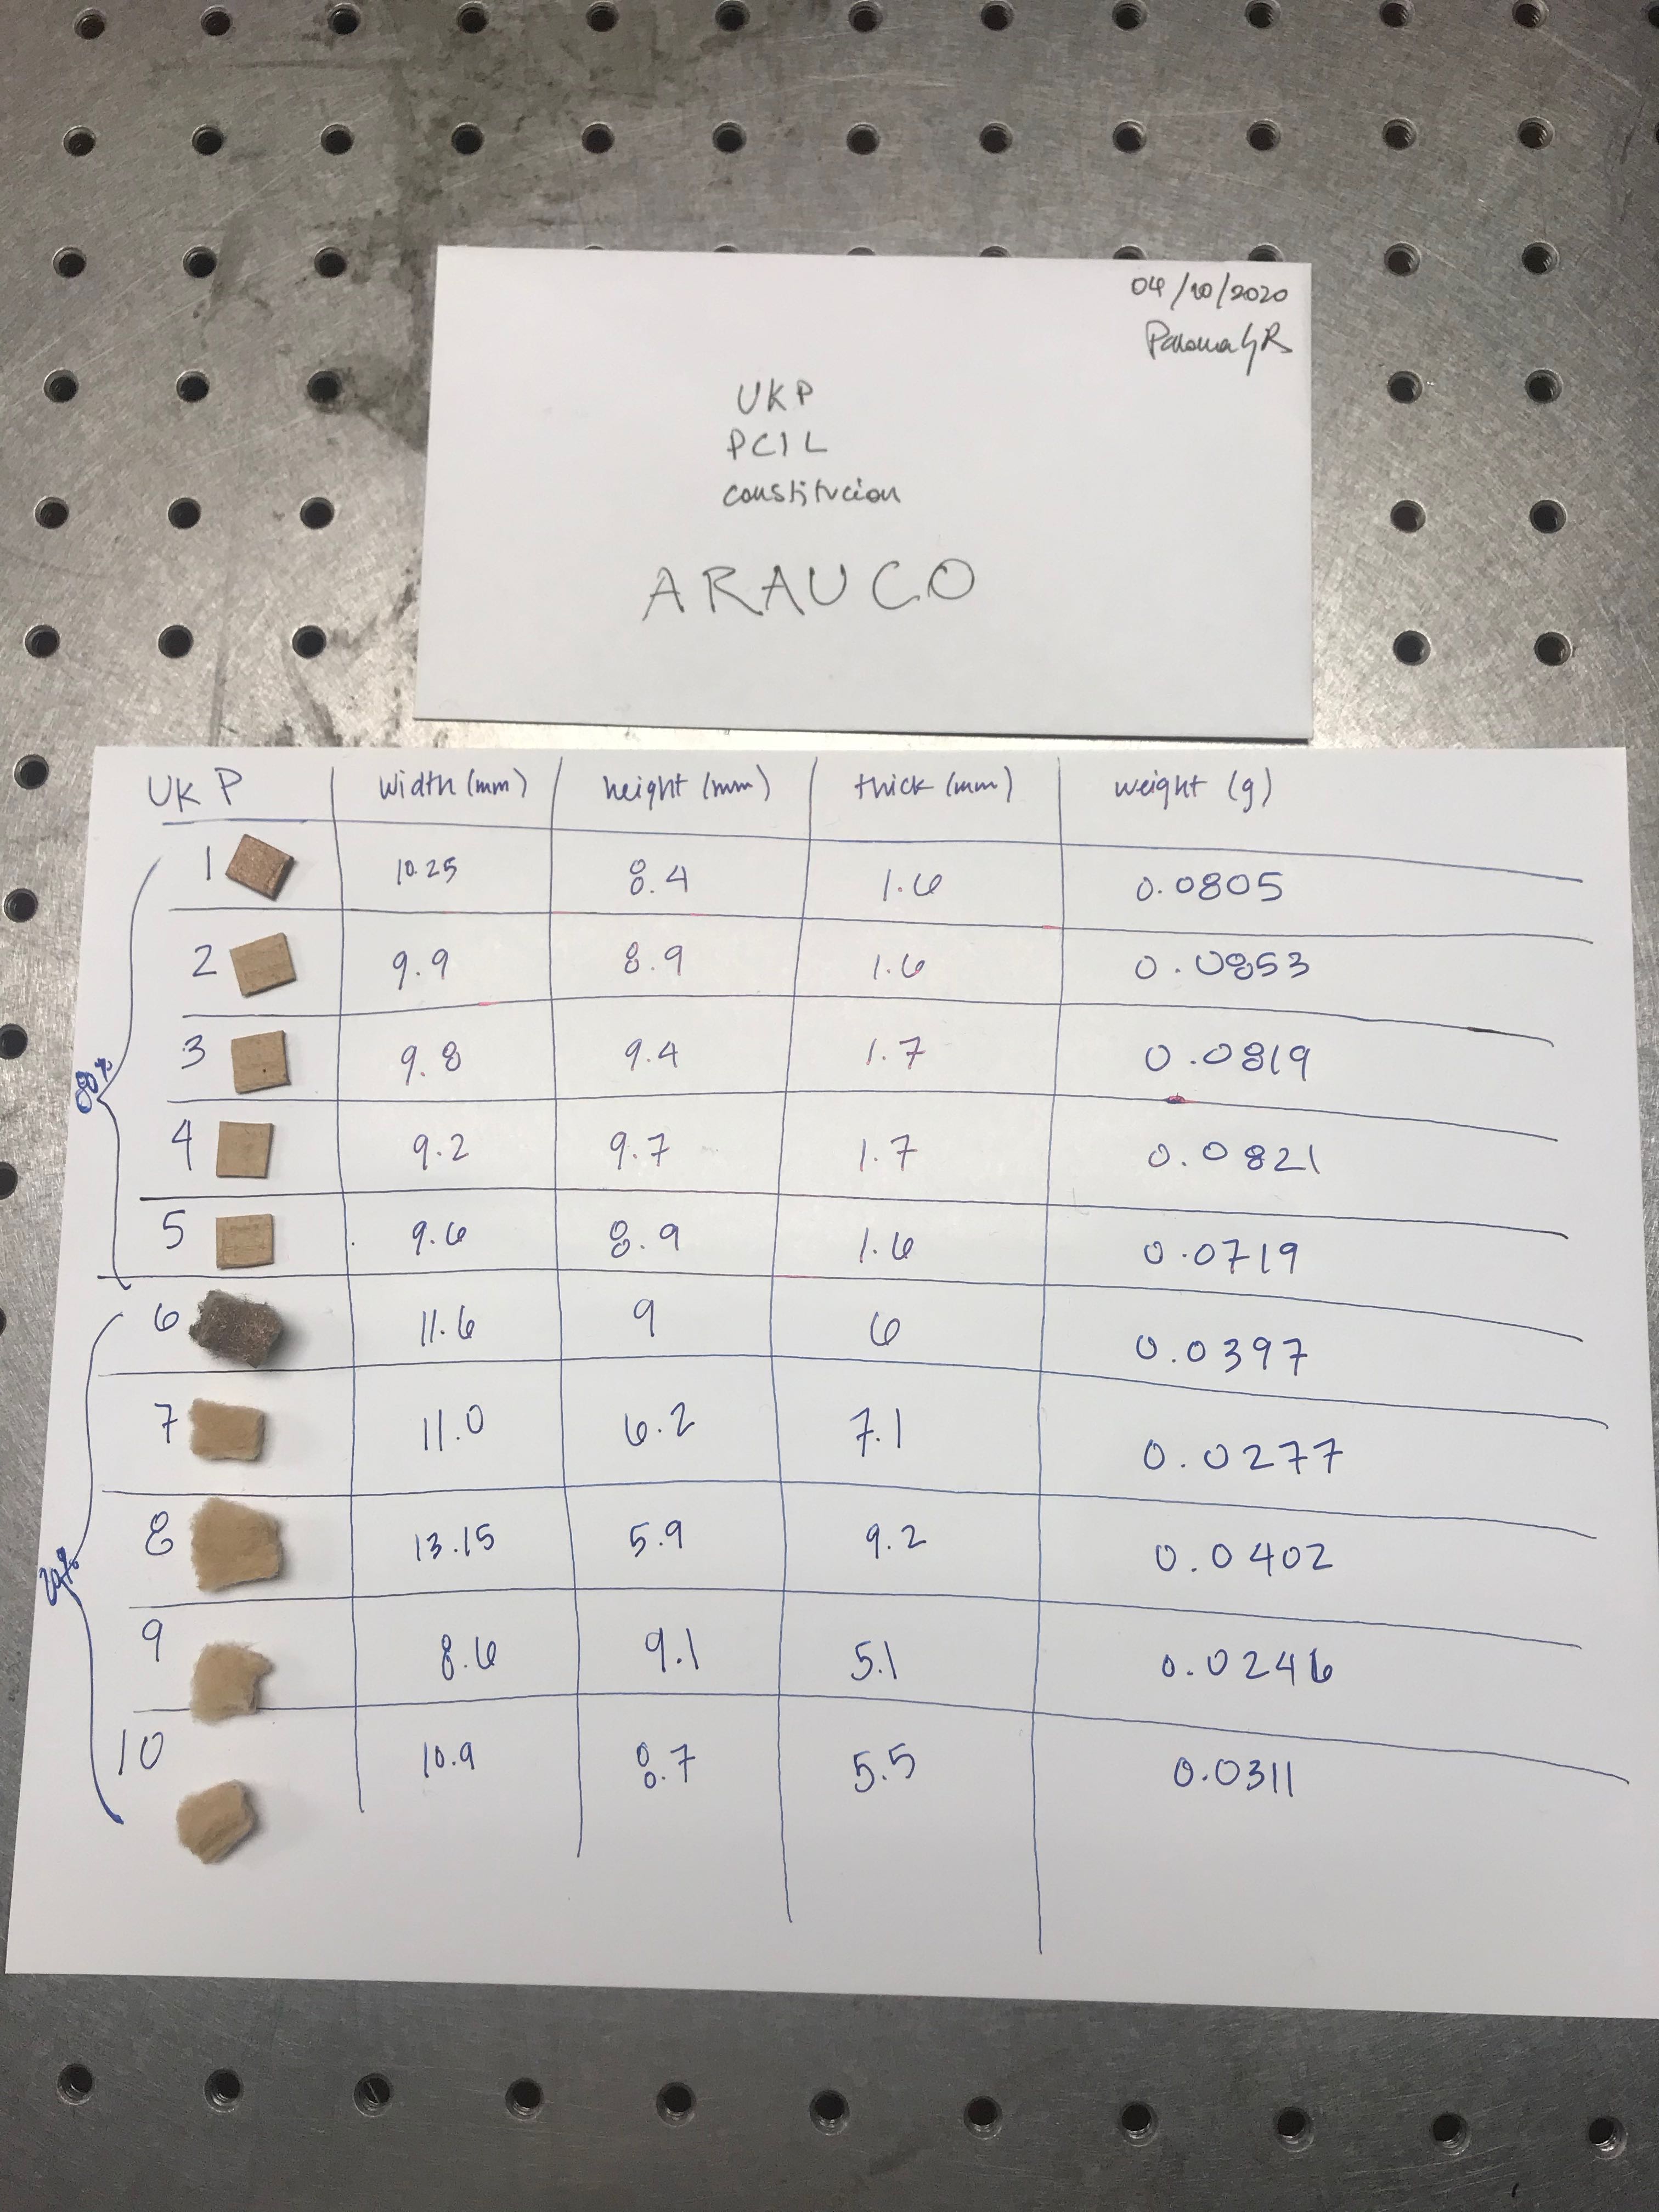 04/10/2020
Paloma GR
UKP
PC1L
constitucion
ARAUCO
UKP width (mm) height (mm) thick (mm) weight (g)
1 10.25 8.4 1.6 0.0805
2 9.9 8.9 1.6 0.0853
3 9.8 9.4 1.7 0.0819
4 9.2 9.7 1.7 0.0821
5 9.6 8.9 1.6 0.0719
6 11.6 9 6 0.0397
7 11.0 6.2 7.1 0.0277
8 13.15 5.9 9.2 0.0402
9 8.6 9.1 5.1 0.0246
10 10.9 8.7 5.5 0.0311